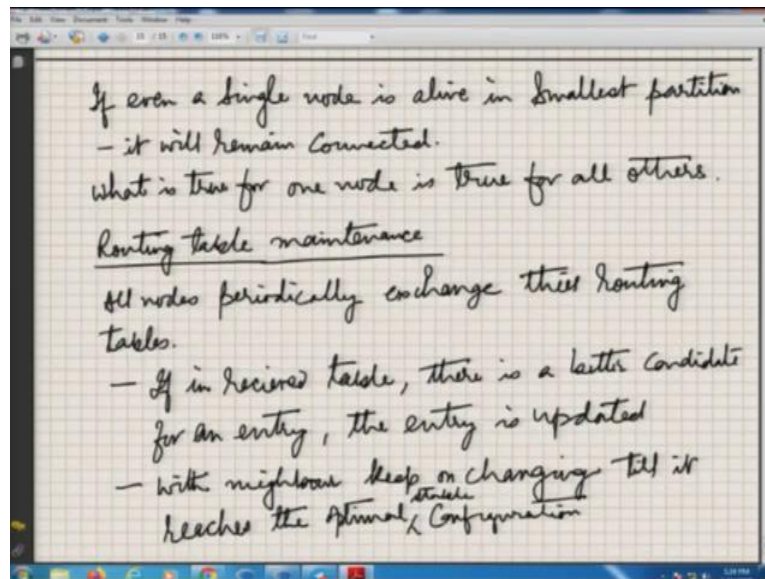 File Edit View Document Tools Window Help
15 / 15
Find
If even a single node is alive in smallest partition
- it will remain connected.
What is true for one node is true for all others.
Routing table maintenance
All nodes periodically exchange thier routing
tables.
- If in recieved table, there is a better candidate
for an entry, the entry is updated
- with neighbour keep on changing till it
reaches the optimal stable configuration
5:29 PM